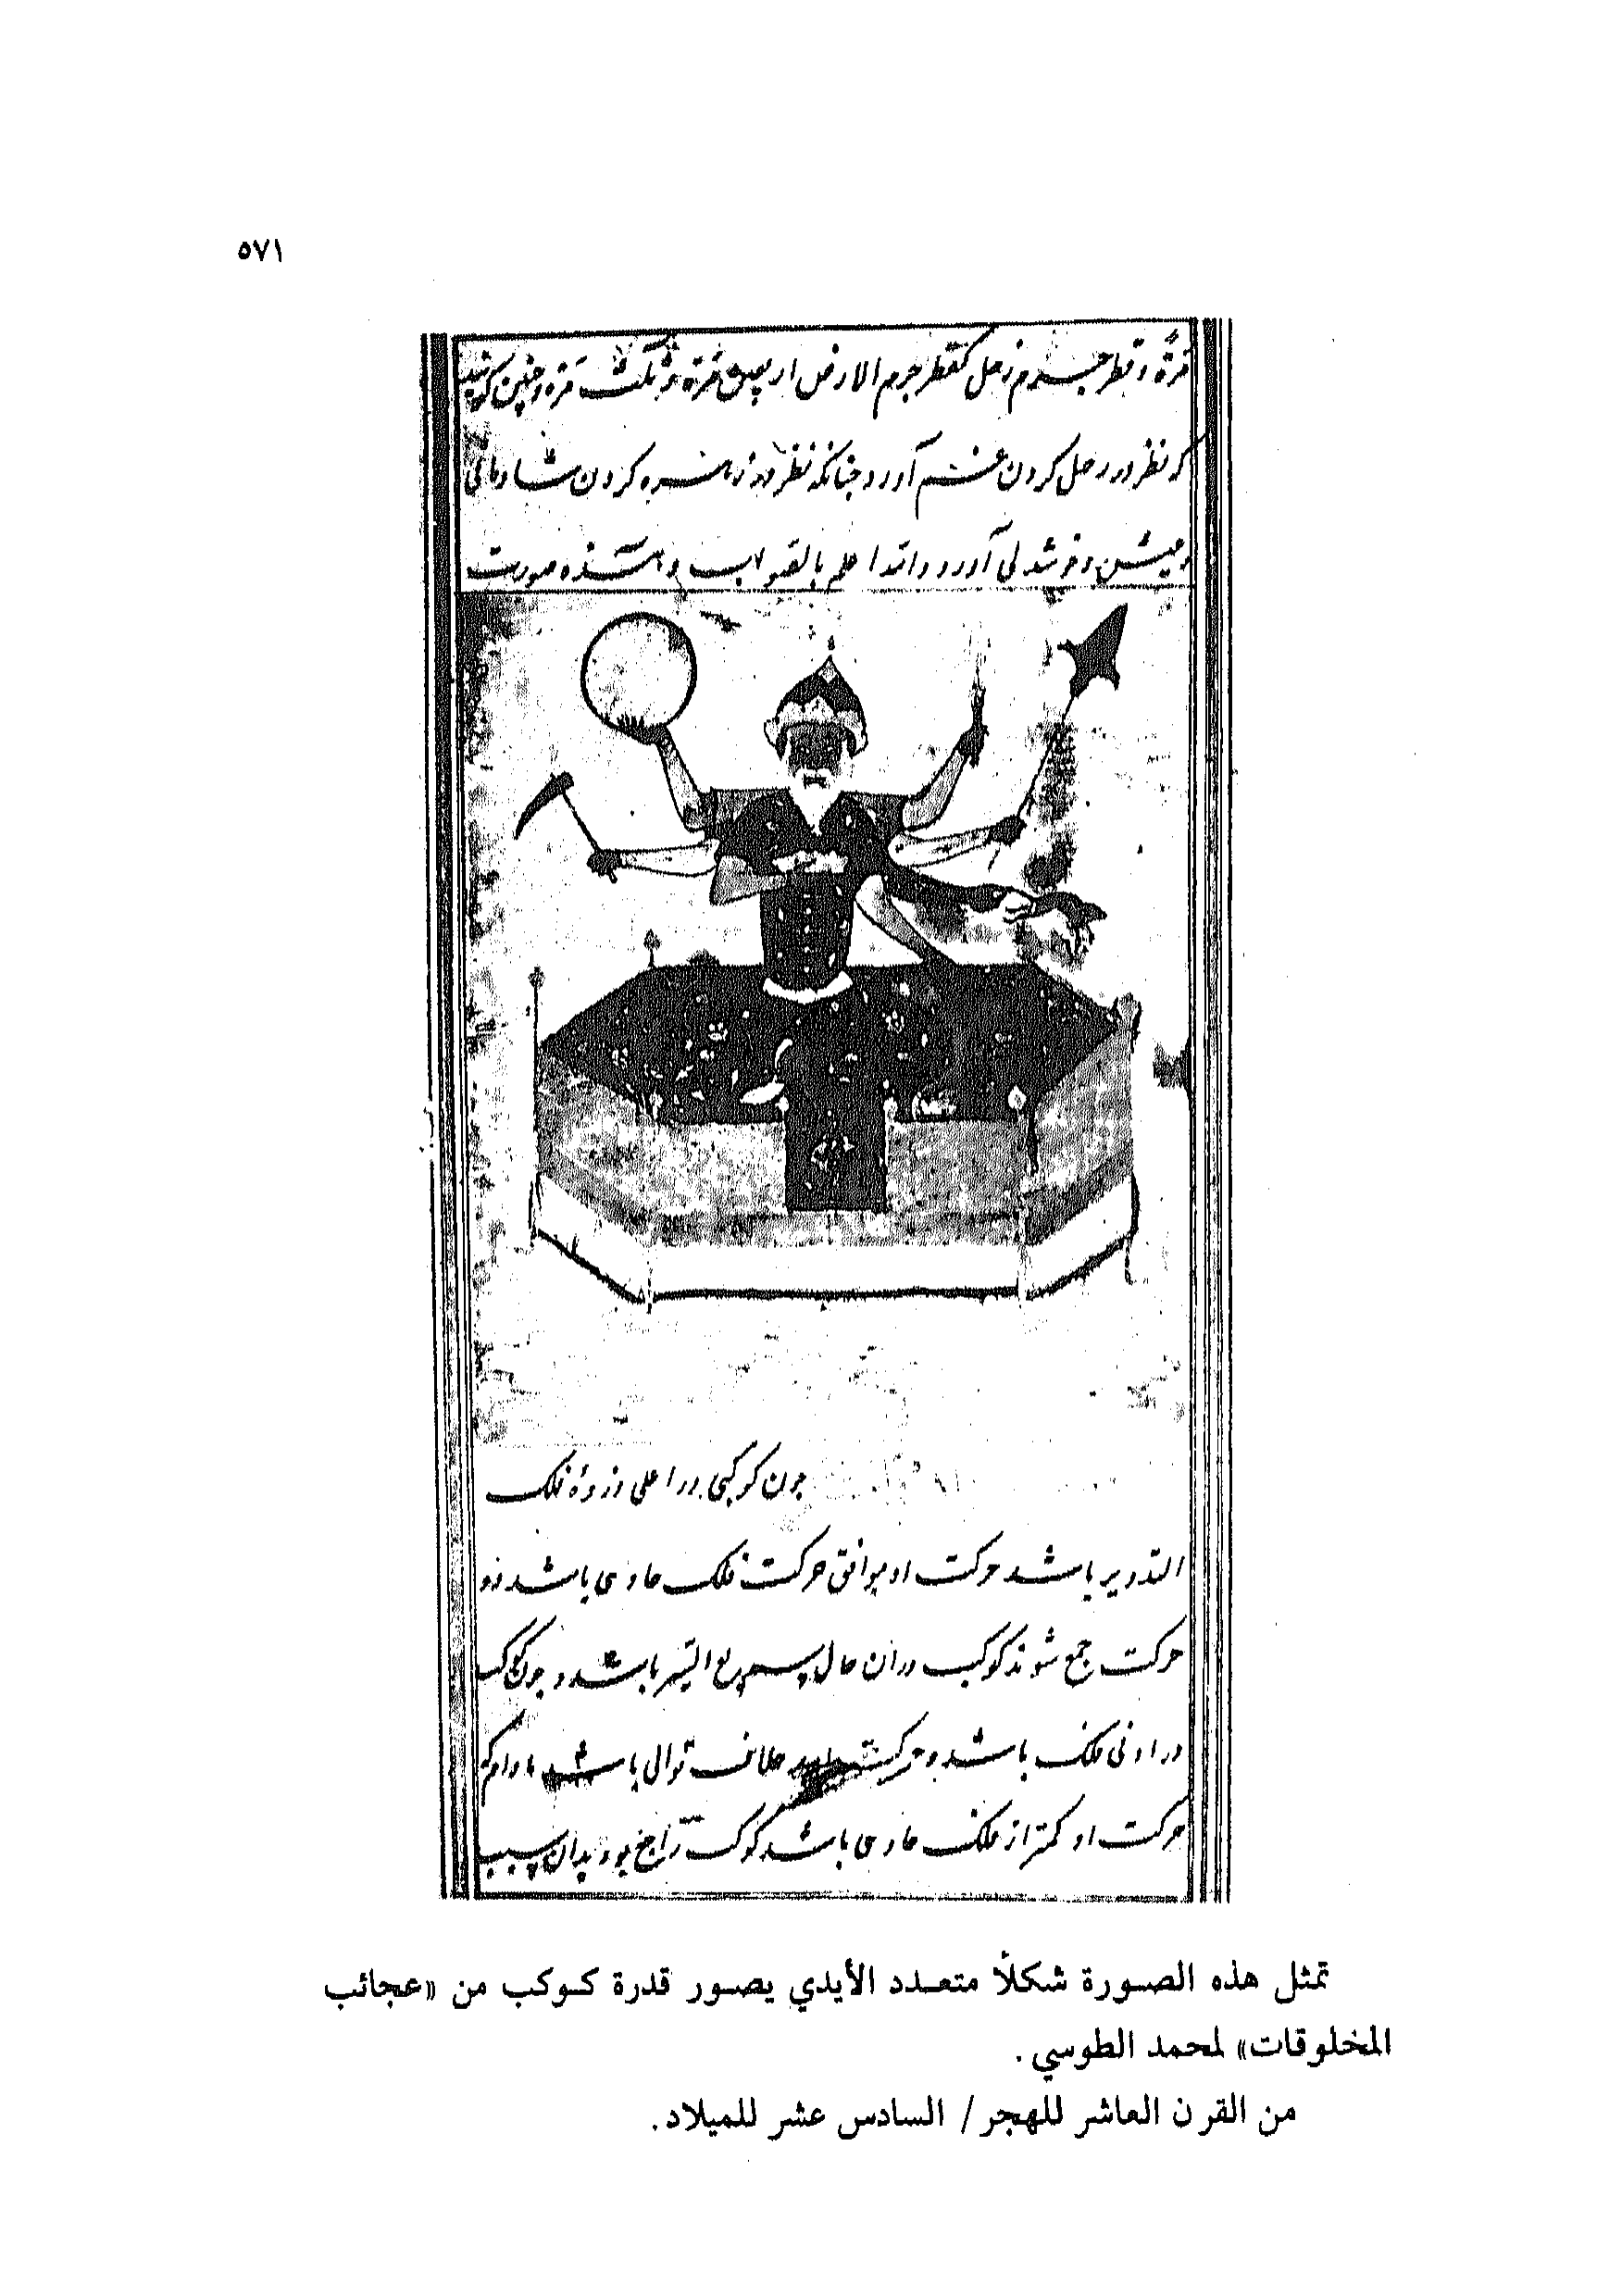 ٥٧١
مرّة و قطر جرم زحل كقطر جرم الارض اربعين مرّة و ثلث مرّه و چنين كويند
كه نظر در زحل كردن غم آورد چنانكه نظر در زهره كردن شادمانى
و عيش و خوشدلى آورد و الله اعلم بالصواب و صورت
چون كوكبى در اعلى ذروهٔ فلك
التدوير باشد حركت او موافق حركت فلك حاوى باشد دو
حركت جمع شوند كوكب در آن حال سريع السير باشد و چون كوكب
در ادنى فلك باشد و حركت خلاف توالى باشد مادام كه
حركت او كمتر از فلك حاوى باشد كوكب راجع بود بدان سبب
تمثل هذه الصورة شكلاً متعدد الأيدي يصور قدرة كوكب من «عجائب
المخلوقات» لمحمد الطوسي .
من القرن العاشر للهجر / السادس عشر للميلاد .